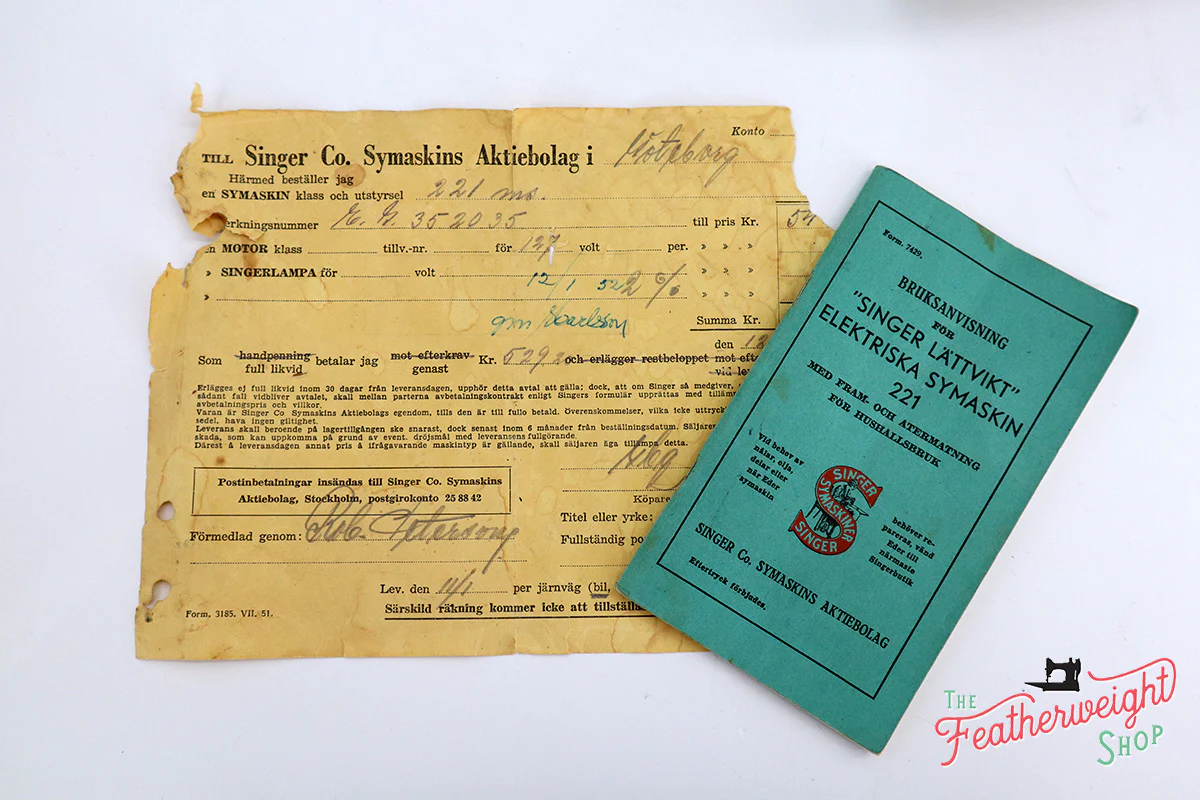 Konto
TILL Singer Co. Symaskins Aktiebolag i Göteborg
Härmed beställer jag
en SYMASKIN klass och utstyrsel 221 ms.
erkningsnummer E. G. 352035 till pris Kr. 57
n MOTOR klass tillv.-nr. för 127 volt per. » » »
» SINGERLAMPA för volt » » »
12/1 52 2 %
» » » »
Summa Kr.
den 12
Som handpenning betalar jag mot efterkrav Kr. 529,20 och erlägger restbeloppet mot eft
full likvid genast vid lev
Erlägges ej full likvid inom 30 dagar från leveransdagen, upphör detta avtal att gälla; dock, att om Singer så medgiver,
sådant fall vidbliver avtalet, skall mellan parterna avbetalningskontrakt enligt Singers formulär upprättas med tilläm
avbetalningspris och villkor.
Varan är Singer Co Symaskins Aktiebolags egendom, tills den är till fullo betald. Överenskommelser, vilka icke uttryck
sedel, hava ingen giltighet.
Leverans skall beroende på lagertillgången ske snarast, dock senast inom 6 månader från beställningsdatum. Säljaren
skada, som kan uppkomma på grund av event. dröjsmål med leveransens fullgörande.
Därest å leveransdagen annat pris å ifrågavarande maskintyp är gällande, skall säljaren äga tillämpa detta.
Gbg
Postinbetalningar insändas till Singer Co. Symaskins
Aktiebolag, Stockholm, postgirokonto 25 88 42
Köpare
Titel eller yrke:
Förmedlad genom: Rob. Petersons
Fullständig po
Lev. den 11/1 per järnväg (bil,
Särskild räkning kommer icke att tillställa
Form. 3185. VII. 51.
Form. 7429.
BRUKSANVISNING
FÖR
"SINGER LÄTTVIKT"
ELEKTRISKA SYMASKIN
221
MED FRAM- OCH ÅTERMATNING
FÖR HUSHÅLLSBRUK
vid behov av
nålar, olja,
delar eller
när Eder
symaskin
SINGER
SYMASKINER
SINGER
behöver re-
pareras, vänd
Eder till
närmaste
Singerbutik
SINGER Co. SYMASKINS AKTIEBOLAG
Eftertryck förbjudes.
THE
Featherweight
SHOP